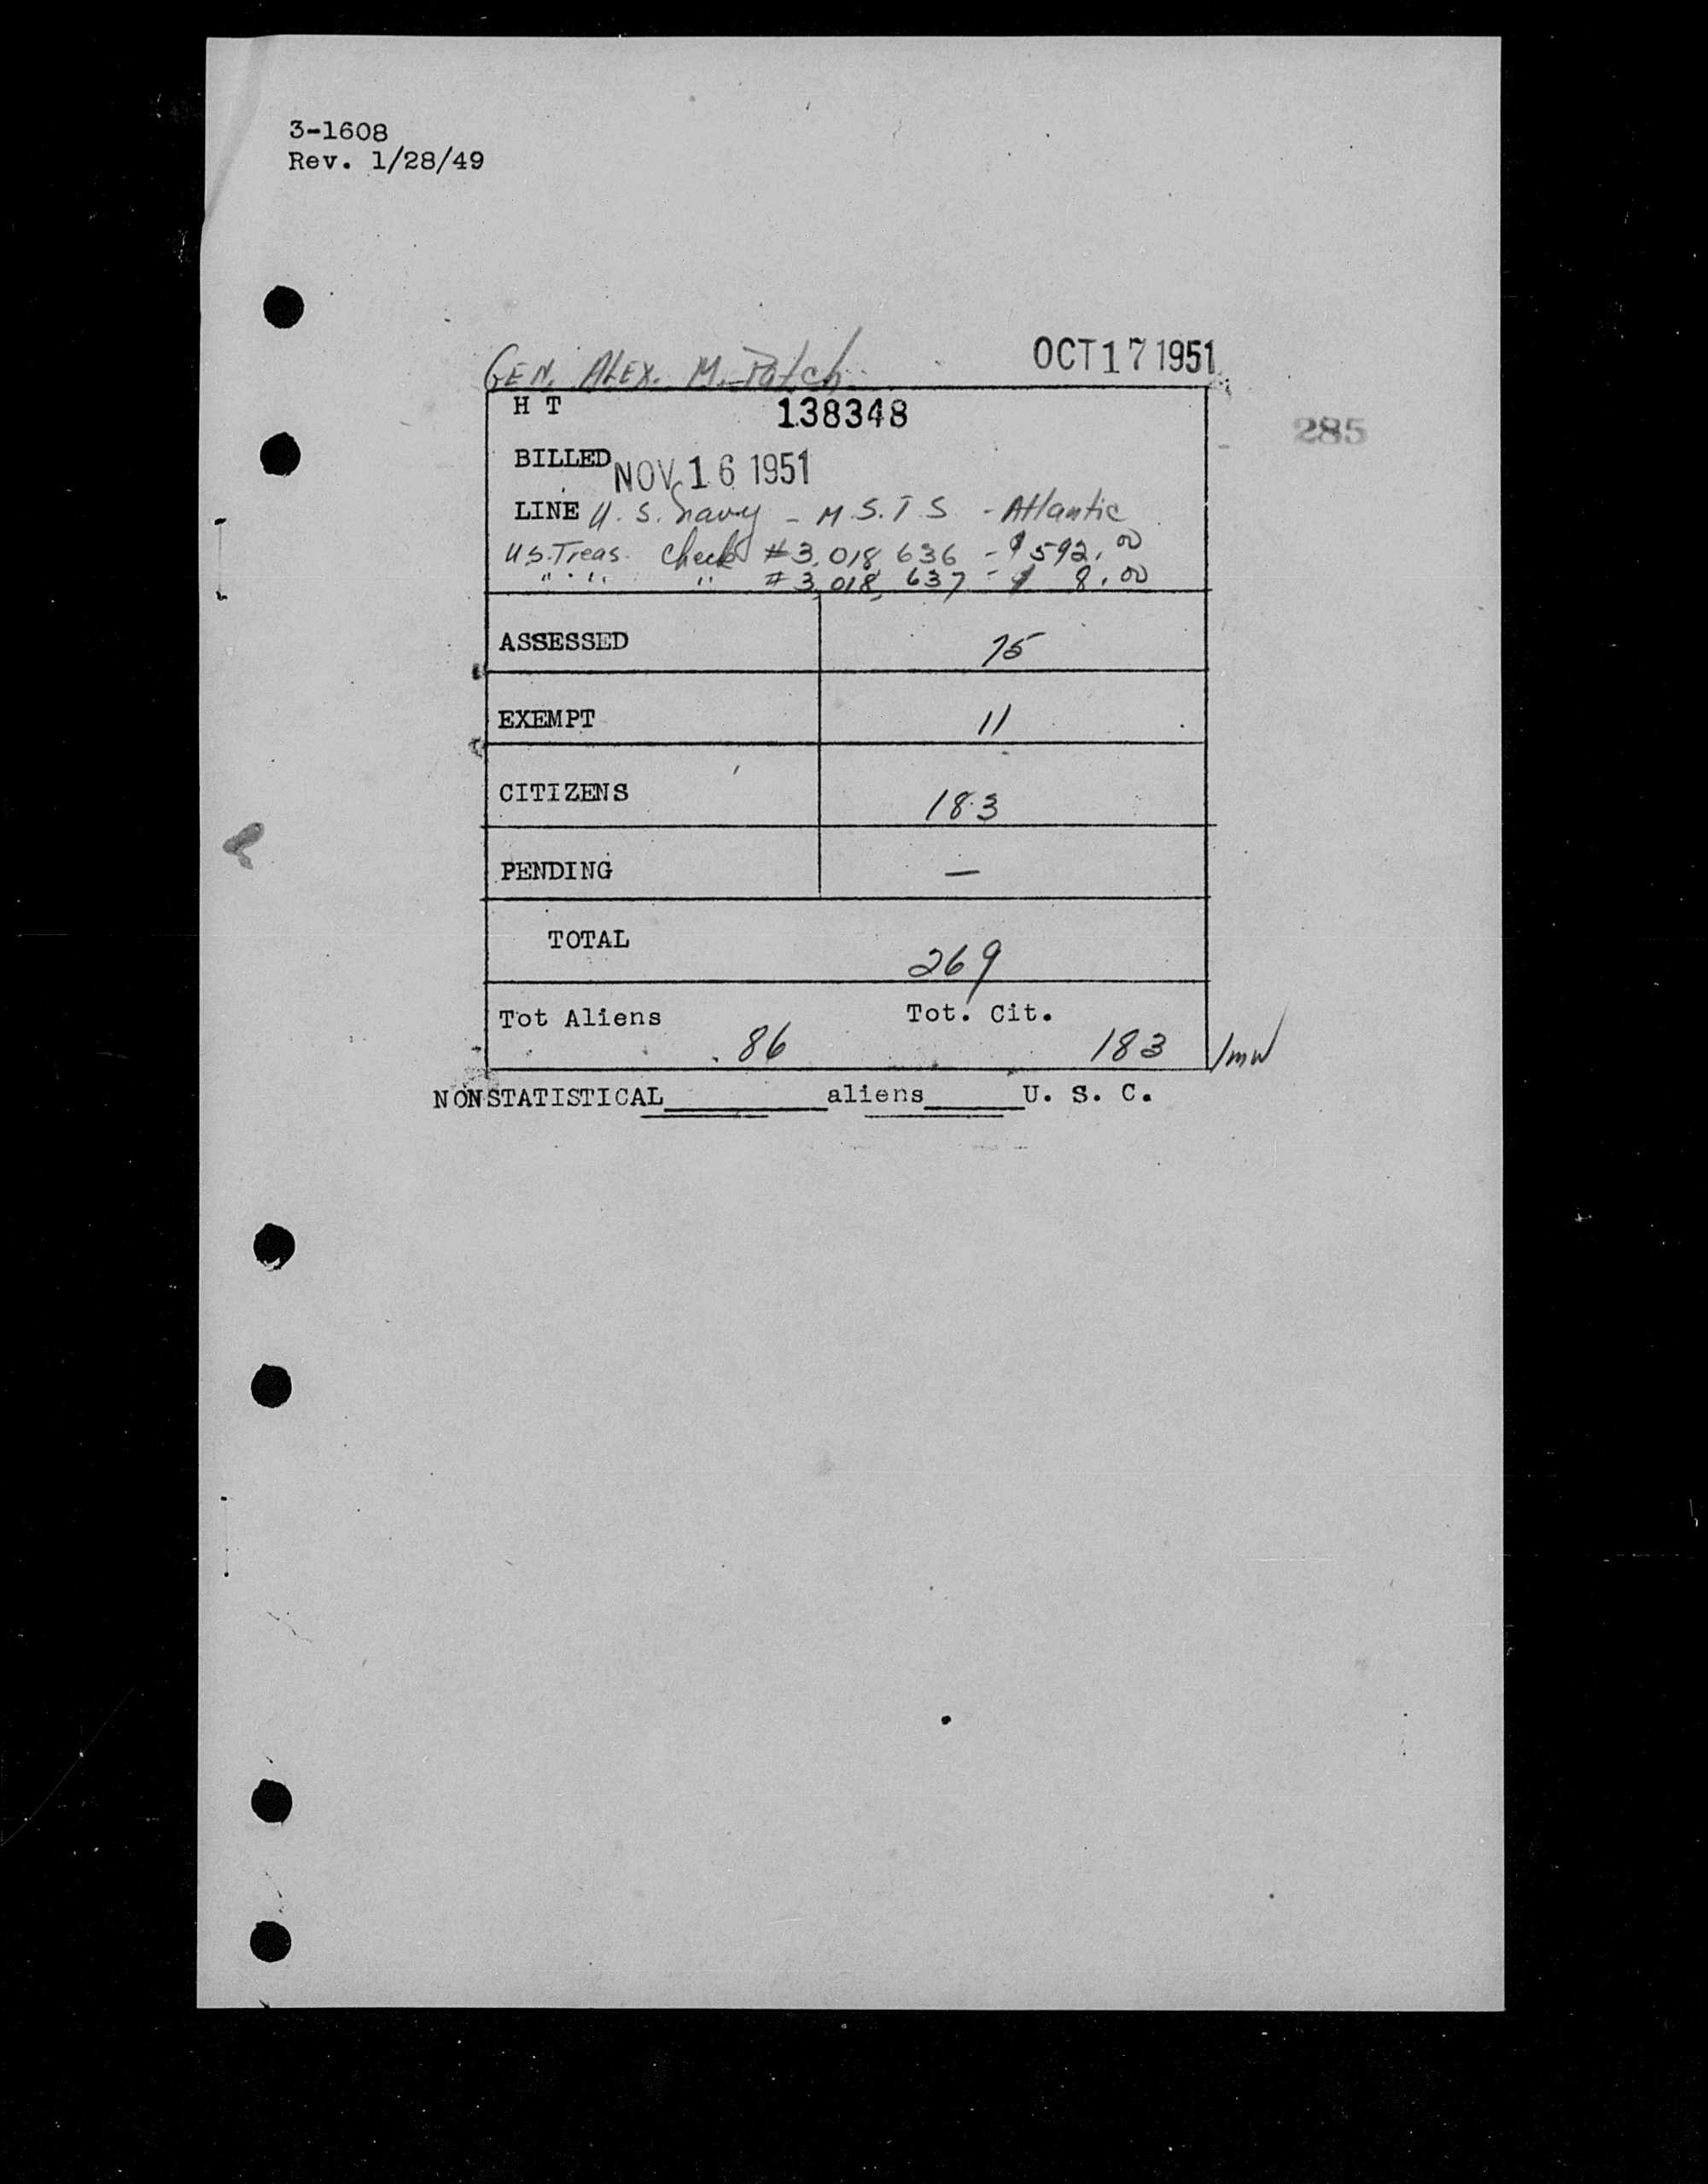 3-1608
Rev. 1/28/49
GEN. ALEX. M. Patch OCT 17 1951
H T 138348
285
BILLED NOV 16 1951
LINE U.S. Navy - M.S.T.S - Atlantic
U.S. Treas. Check #3,018,636 - $592.00
" " " #3,018,637 - $ 8.00
ASSESSED 75
EXEMPT 11
CITIZENS 183
PENDING —
TOTAL 269
Tot Aliens 86 Tot. Cit. 183 /mw
NONSTATISTICAL__________aliens______U. S. C.